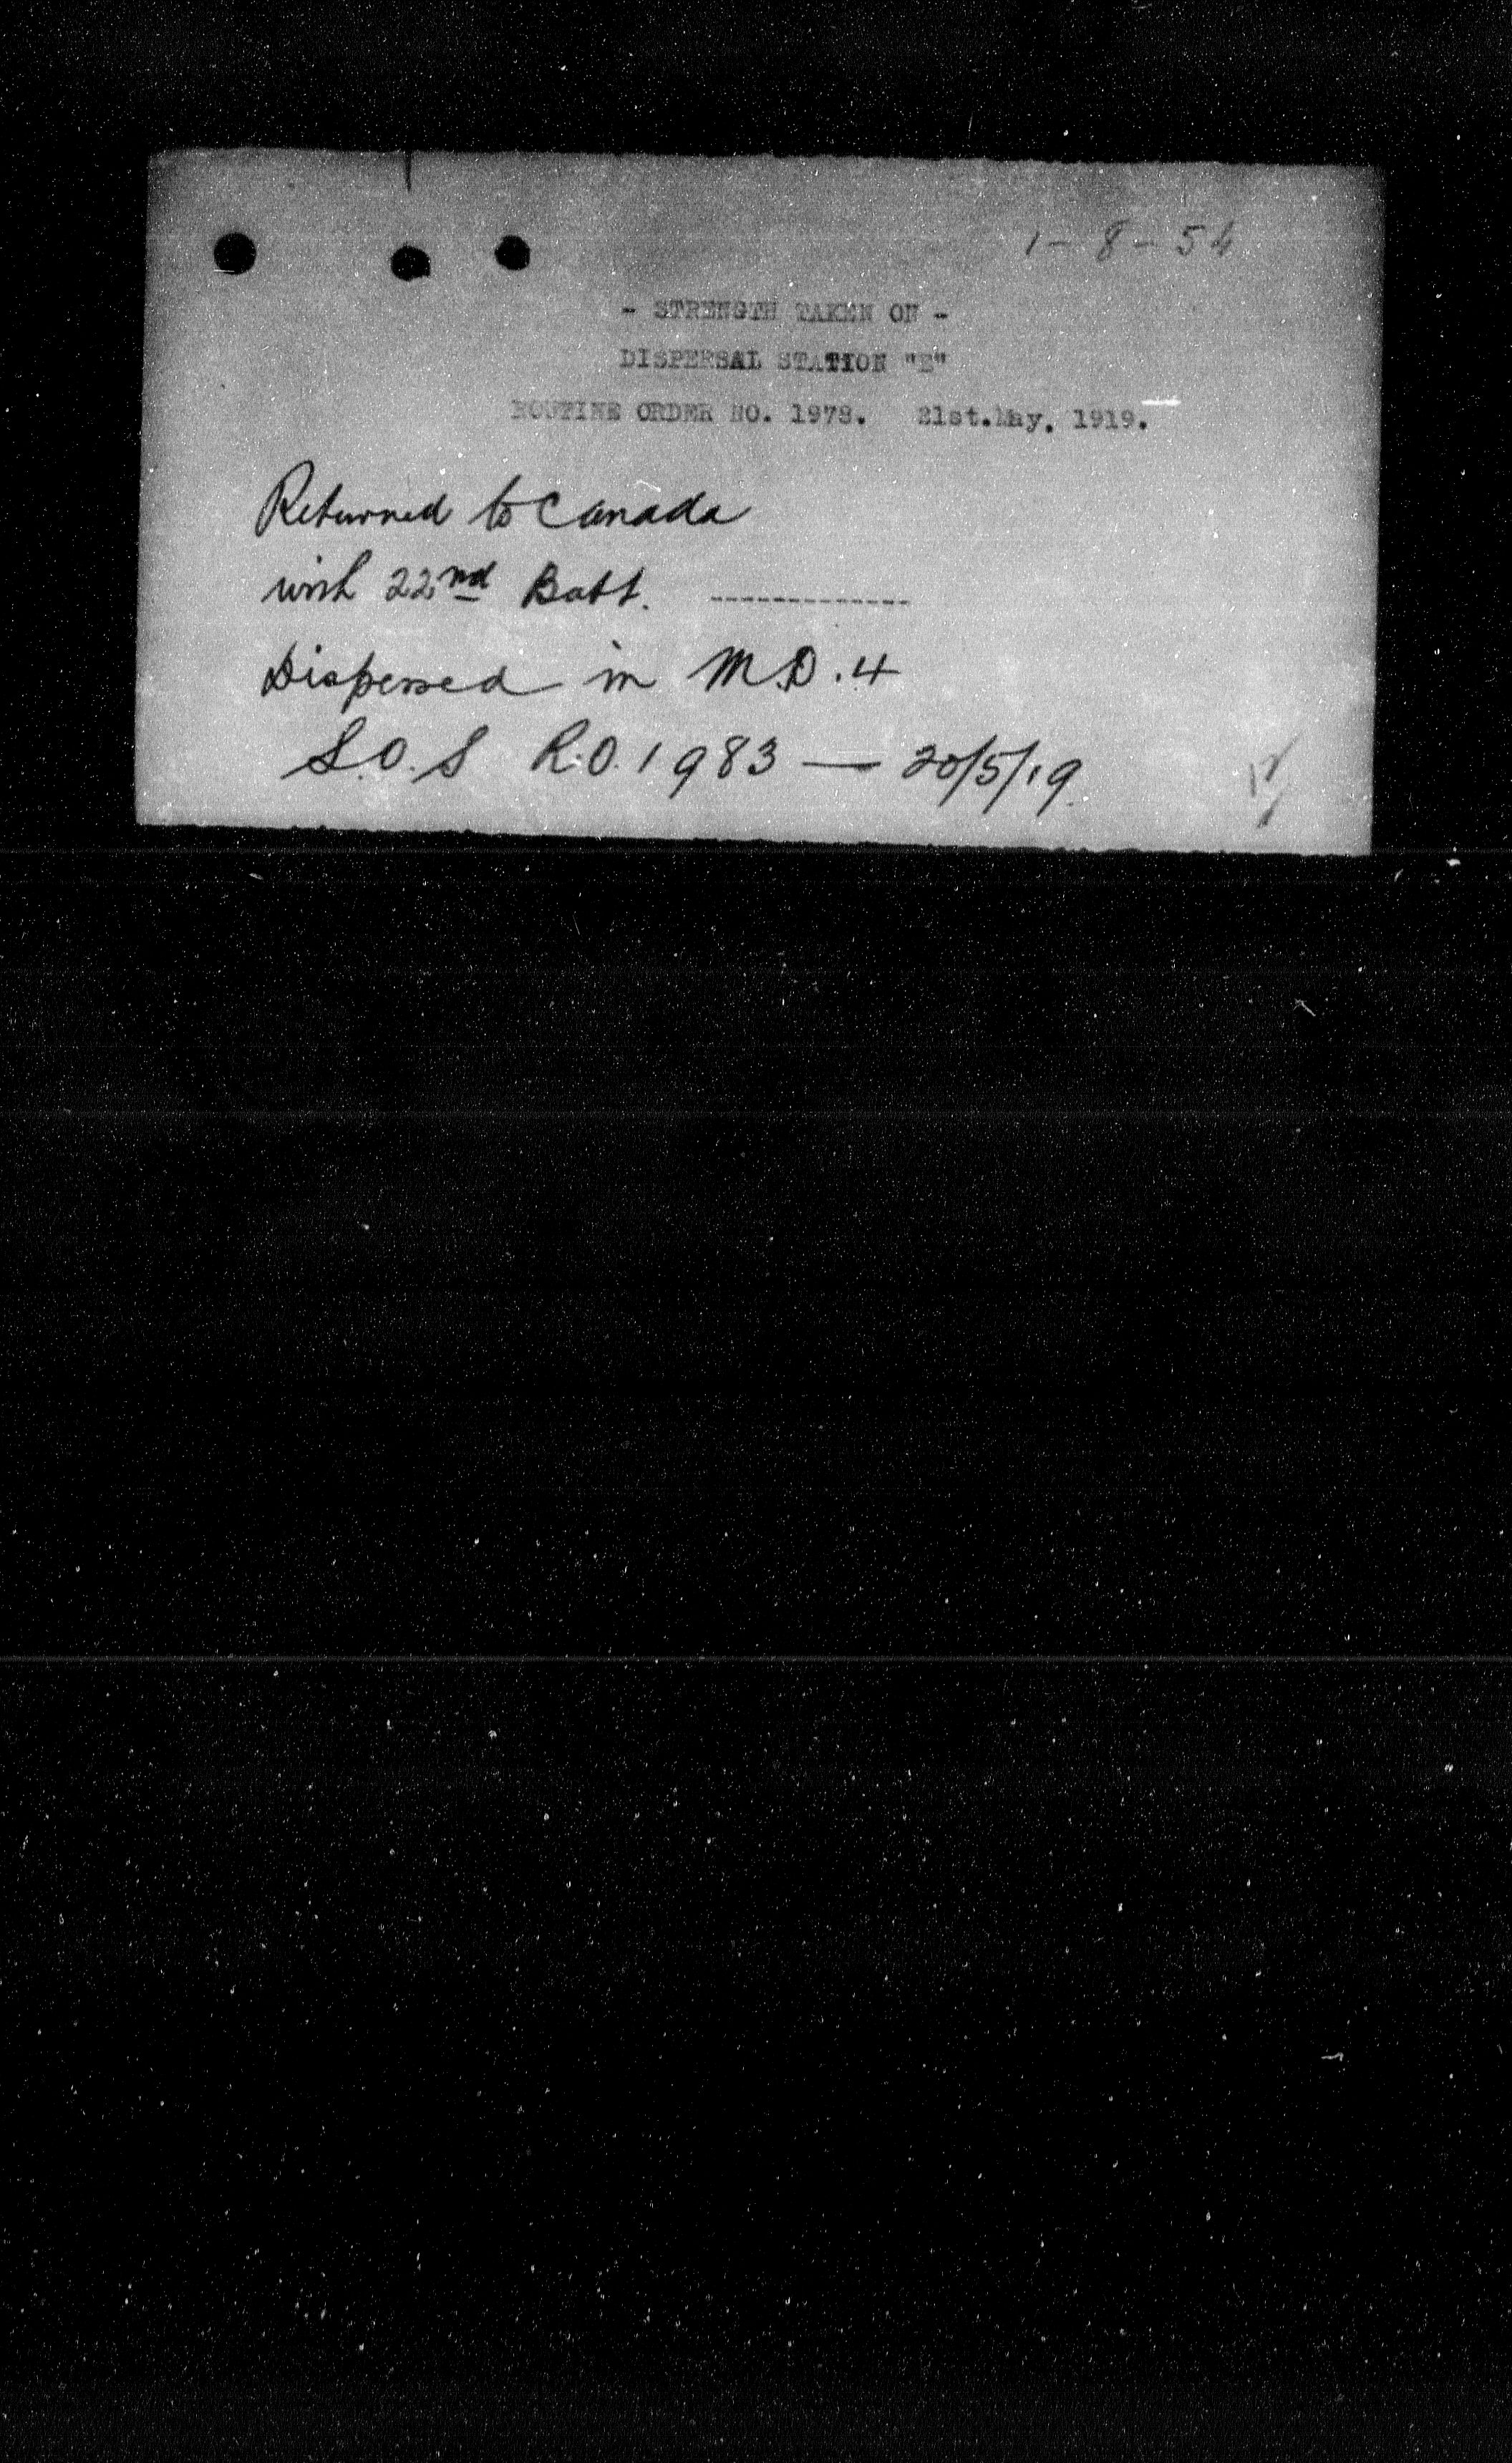 1-8-54
- STRENGTH TAKEN ON -
DISPERSAL STATION "E"
ROUTINE ORDER NO. 1978. 21st.May. 1919.
Returned to Canada
with 22nd Batt. -------------
Dispersed in M.D.4
S.O.S R.O.1983 — 20/5/19.